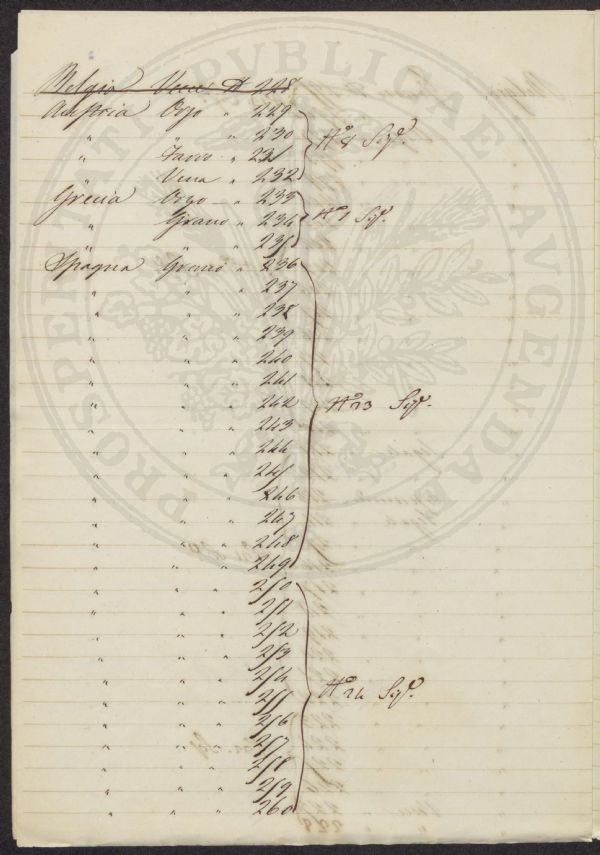 Belgio Veccie N° 228
Austria Orzo " 229
" " " 230
" Farro " 231
" Vena " 232
N° 8 Sigl.
Grecia Orzo " 233
" Grano " 234
" " " 235
N° 1 Sigl.
Spagna Grano " 236
" " " 237
" " " 238
" " " 239
" " " 240
" " " 241
" " " 242
N° 23 Sigl.
" " " 243
" " " 244
" " " 245
" " " 246
" " " 247
" " " 248
" " " 249
" " " 250
" " " 251
" " " 252
" " " 253
" " " 254
" " " 255
N° 24 Sigl.
" " " 256
" " " 257
" " " 258
" " " 259
" " " 260
PROSPERITATI PUBLICAE AUGENDAE